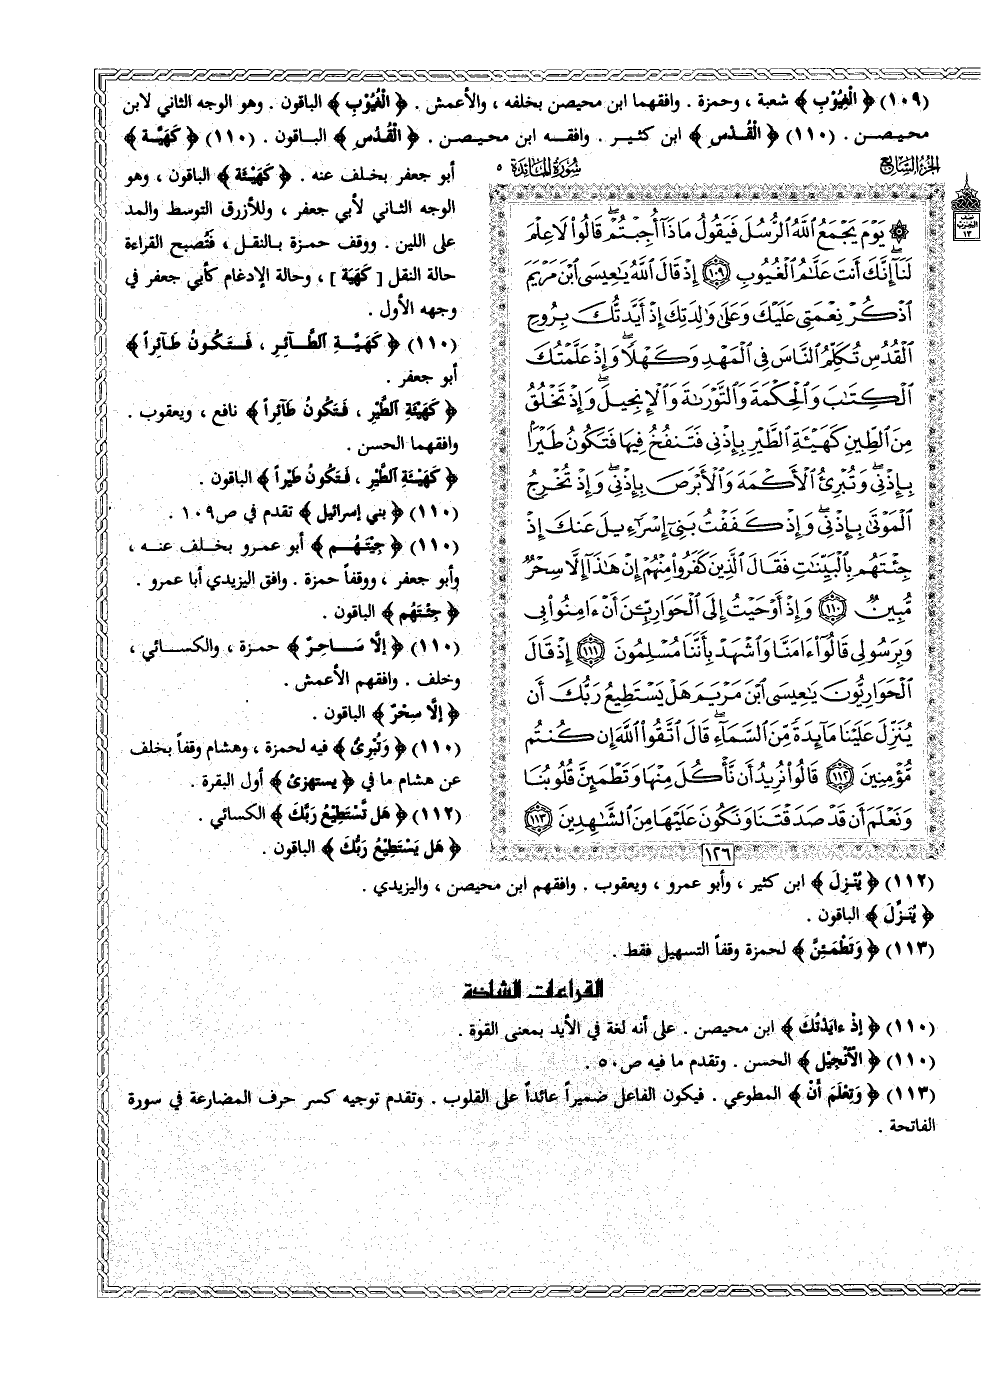 (١٠٩) ﴿ الْغِيُوْبِ ﴾ شعبة ، وحمزة . وافقهما ابن محيصن بخلفه ، والأعمش . ﴿ الْغُيُوْبِ ﴾ الباقون . وهو الوجه الثاني لابن
محيصن . (١١٠) ﴿ الْقُدْسِ ﴾ ابن كثير . وافقه ابن محيصن . ﴿ الْقُدُسِ ﴾ الباقون . (١١٠) ﴿ كَهَيَّة ﴾
أبو جعفر بخلف عنه . ﴿ كَهَيْئَة ﴾ الباقون ، وهو
الوجه الثاني لأبي جعفر ، وللأزرق التوسط والمد
على اللين . ووقف حمزة بالنقل ، فتُصبح القراءة
حالة النقل [ كَهَيَة ] ، وحالة الإدغام كأبي جعفر في
وجهه الأول .
(١١٠) ﴿ كَهَيَّةِ الطَّائِرِ ، فَتَكُونُ طَآئِراً ﴾
أبو جعفر .
﴿ كَهَيْئَةِ الطَّيْرِ ، فَتَكُونُ طَآئِراً ﴾ نافع ، ويعقوب .
وافقهما الحسن .
﴿ كَهَيْئَةِ الطَّيْرِ ، فَتَكُونُ طَيْراً ﴾ الباقون .
(١١٠) ﴿ بني إسرائيل ﴾ تقدم في ص١٠٩ .
(١١٠) ﴿ جِيتَهُم ﴾ أبو عمرو بخلف عنه ،
وأبو جعفر ، ووقفاً حمزة . وافق اليزيدي أبا عمرو .
﴿ جِئْتَهُم ﴾ الباقون .
(١١٠) ﴿ إِلَّا سَاحِرٌ ﴾ حمزة ، والكسائي ،
وخلف . وافقهم الأعمش .
﴿ إِلَّا سِحْرٌ ﴾ الباقون .
(١١٠) ﴿ وَتُبْرِئُ ﴾ فيه لحمزة ، وهشام وقفاً بخلف
عن هشام ما في ﴿ يستهزئ ﴾ أول البقرة .
(١١٢) ﴿ هَل تَّسْتَطِيْعُ رَبَّكَ ﴾ الكسائي .
﴿ هَل يَسْتَطِيْعُ رَبُّكَ ﴾ الباقون .
الجزء السابع
سورة المائدة ٥
نصف الحزب ١٣
۞ يَوْمَ يَجْمَعُ ٱللَّهُ ٱلرُّسُلَ فَيَقُولُ مَاذَآ أُجِبْتُمْ ۖ قَالُوا۟ لَا عِلْمَ
لَنَآ ۖ إِنَّكَ أَنتَ عَلَّٰمُ ٱلْغُيُوبِ ١٠٩ إِذْ قَالَ ٱللَّهُ يَٰعِيسَى ٱبْنَ مَرْيَمَ
ٱذْكُرْ نِعْمَتِى عَلَيْكَ وَعَلَىٰ وَٰلِدَتِكَ إِذْ أَيَّدتُّكَ بِرُوحِ
ٱلْقُدُسِ تُكَلِّمُ ٱلنَّاسَ فِى ٱلْمَهْدِ وَكَهْلًا ۖ وَإِذْ عَلَّمْتُكَ
ٱلْكِتَٰبَ وَٱلْحِكْمَةَ وَٱلتَّوْرَىٰةَ وَٱلْإِنجِيلَ ۖ وَإِذْ تَخْلُقُ
مِنَ ٱلطِّينِ كَهَيْـَٔةِ ٱلطَّيْرِ بِإِذْنِى فَتَنفُخُ فِيهَا فَتَكُونُ طَيْرًۢا
بِإِذْنِى ۖ وَتُبْرِئُ ٱلْأَكْمَهَ وَٱلْأَبْرَصَ بِإِذْنِى ۖ وَإِذْ تُخْرِجُ
ٱلْمَوْتَىٰ بِإِذْنِى ۖ وَإِذْ كَفَفْتُ بَنِىٓ إِسْرَٰٓءِيلَ عَنكَ إِذْ
جِئْتَهُم بِٱلْبَيِّنَٰتِ فَقَالَ ٱلَّذِينَ كَفَرُوا۟ مِنْهُمْ إِنْ هَٰذَآ إِلَّا سِحْرٌ
مُّبِينٌ ١١٠ وَإِذْ أَوْحَيْتُ إِلَى ٱلْحَوَارِيِّـۧنَ أَنْ ءَامِنُوا۟ بِى
وَبِرَسُولِى قَالُوٓا۟ ءَامَنَّا وَٱشْهَدْ بِأَنَّنَا مُسْلِمُونَ ١١١ إِذْ قَالَ
ٱلْحَوَارِيُّونَ يَٰعِيسَى ٱبْنَ مَرْيَمَ هَلْ يَسْتَطِيعُ رَبُّكَ أَن
يُنَزِّلَ عَلَيْنَا مَآئِدَةً مِّنَ ٱلسَّمَآءِ ۖ قَالَ ٱتَّقُوا۟ ٱللَّهَ إِن كُنتُم
مُّؤْمِنِينَ ١١٢ قَالُوا۟ نُرِيدُ أَن نَّأْكُلَ مِنْهَا وَتَطْمَئِنَّ قُلُوبُنَا
وَنَعْلَمَ أَن قَدْ صَدَقْتَنَا وَنَكُونَ عَلَيْهَا مِنَ ٱلشَّٰهِدِينَ ١١٣
١٢٦
(١١٢) ﴿ يُنْزِلَ ﴾ ابن كثير ، وأبو عمرو ، ويعقوب . وافقهم ابن محيصن ، واليزيدي .
﴿ يُنَزِّلَ ﴾ الباقون .
(١١٣) ﴿ وَتَطْمَئِنَّ ﴾ لحمزة وقفاً التسهيل فقط .
القراءات الشاذة
(١١٠) ﴿ إِذْ ءايَدْتُكَ ﴾ ابن محيصن . على أنه لغة في الأيد بمعنى القوة .
(١١٠) ﴿ الْأَنْجِيْلَ ﴾ الحسن . وتقدم ما فيه ص٥٠ .
(١١٣) ﴿ وَتِعْلَمَ أَنْ ﴾ المطوعي . فيكون الفاعل ضميراً عائداً على القلوب . وتقدم توجيه كسر حرف المضارعة في سورة
الفاتحة .